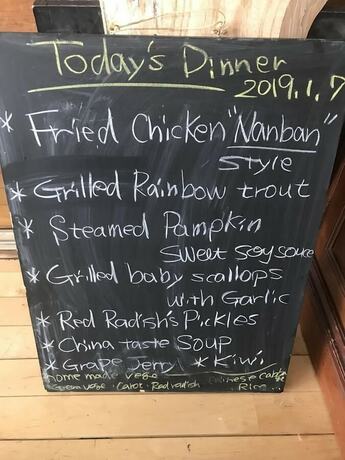 Today's Dinner
2019.1.7
* Fried Chicken "Nanban"
style
* Grilled Rainbow trout
* Steamed Pampkin
sweet soy souce
* Grilled baby scallops
with Garlic
* Red Radish's Pickles
* China taste Soup
* Grape Jerry * Kiwi
home made vege
Green vege . Carot . Red radish
Rice